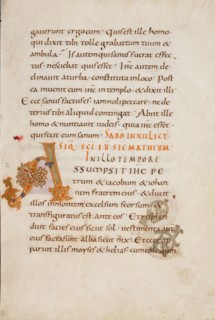 gaverunt ergo eum · quis est ille homo
qui dixit tibi tolle grabattum tuum &
ambula · Is autem qui sanus fuerat effec
tus · nesciebat quis esset · ihc autem de
clinavit a turba · constituta in loco · Post
ea invenit eum ihc in templo · & dixit illi ·
Ecce sanus factus es · iam noli peccare · ne de
terius tibi aliquid contingat · Abiit ille
homo & nuntiavit iudeis · quia ihc esset
qui fecit eum sanum · SABB IN XII LECT
SEQ · SCI EV SEC MATHEUM
IN ILLO TEMPORE
ASSUMPSIT IHC PE
trum & iacobum & iohan
nem fratrem eius · & ducit
illos in montem excelsum seorsum · &
transfiguratus est ante eos · Et resplen
duit facies eius sicut sol · vestimenta aut
eius facta sunt alba sicut nix · Et ecce ap
paruit illis moyses & helias · cum